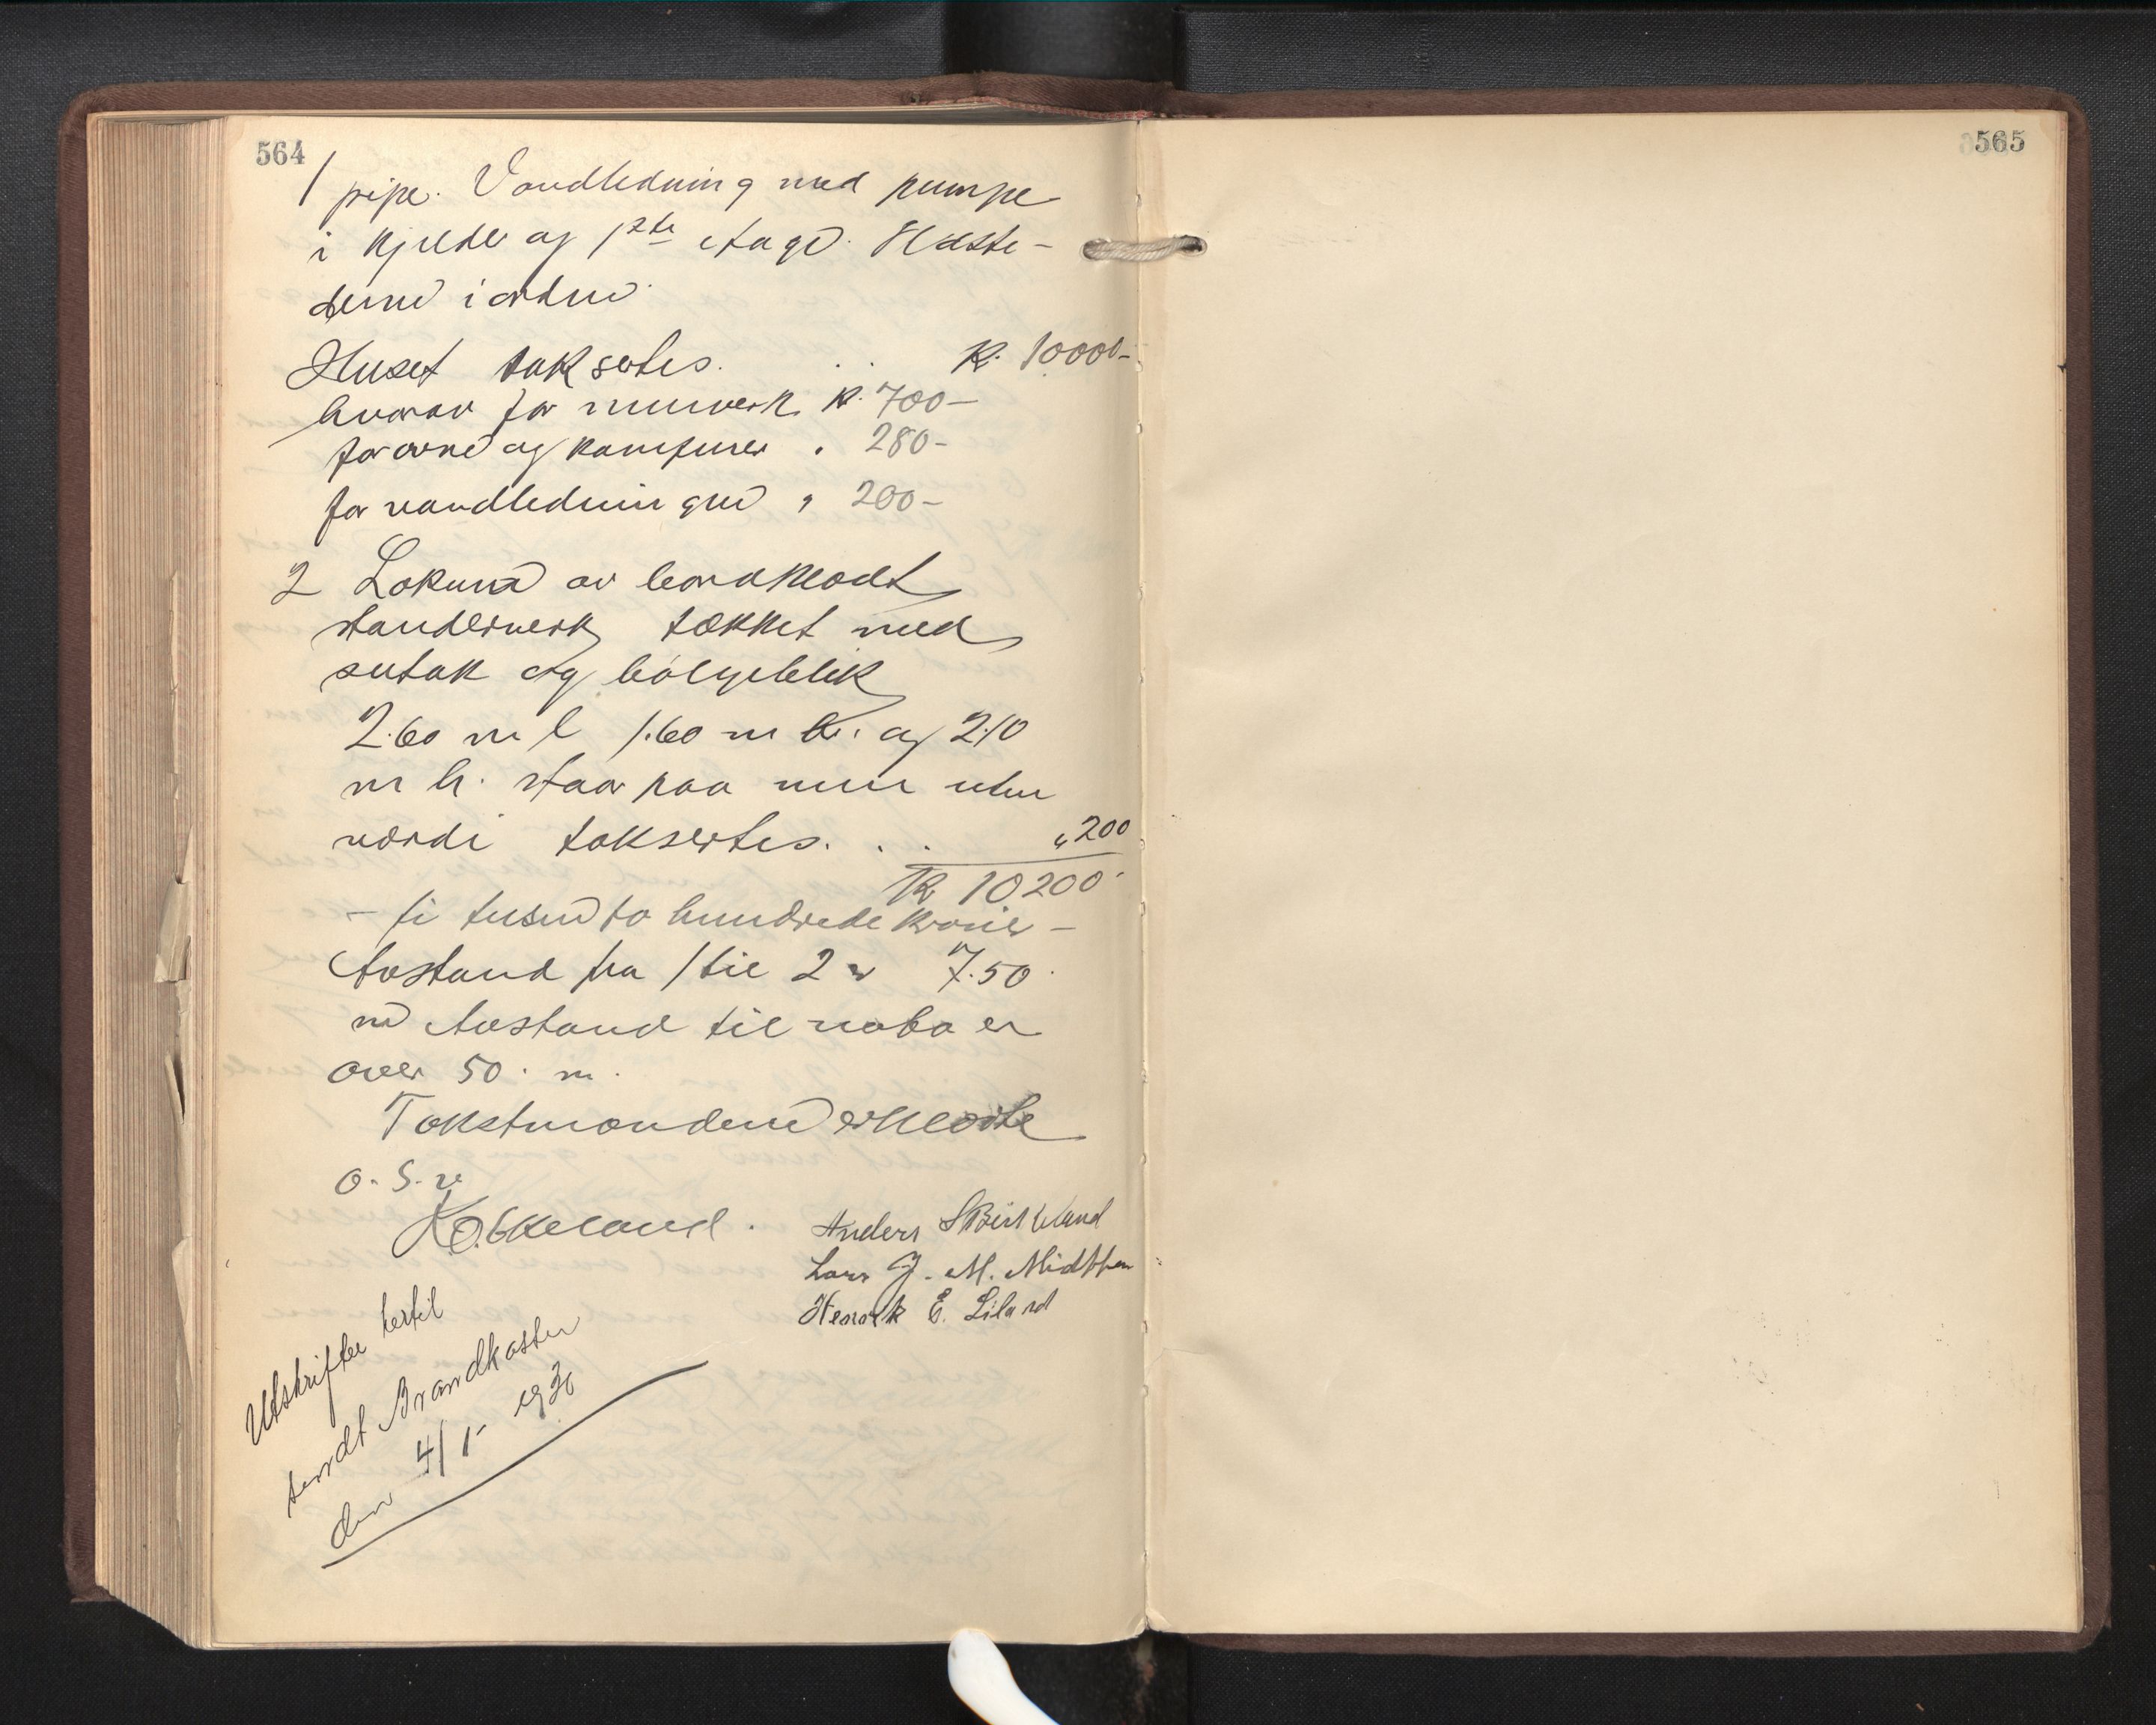 564
1 pipe. Vandledning med pumpe
i kjelder og 1ste etage. Ildste-
derne i orden.
Huset taksertes. . . Kr. 10000-
hvorav for murverk kr. 700-
for ovne og komfurer . 280-
for vandledningen " 200-
2 Lokum av bordklædt
standerverk tækket med
sutak og bølgeblik
2.60 m l 1.60 m br. og 2.10
m h. staar paa mur uten
værdi taksertes. . . " 200
Kr 10200-
- ti tusen to hundrede kroner -
Avstand fra 1 til 2 er 7.50
m Avstand til nabo er
over 50. m.
Takstmændene erklærte
o. s. v.
K. O. Eikeland.
Anders S Birkeland
Lars J. M. Midttun
Henrik E. Liland
Utskrifter hertil
sendt Brandkassen
den 4/1- 1930
565